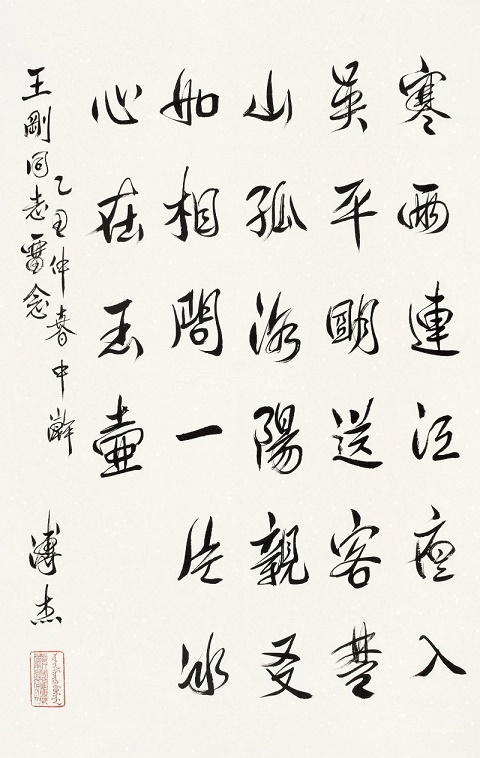 寒雨連江夜入
吳平明送客楚
山孤洛陽親友
如相問一片冰
心在玉壺
王剛同志畱念
乙丑仲春中澣
溥杰